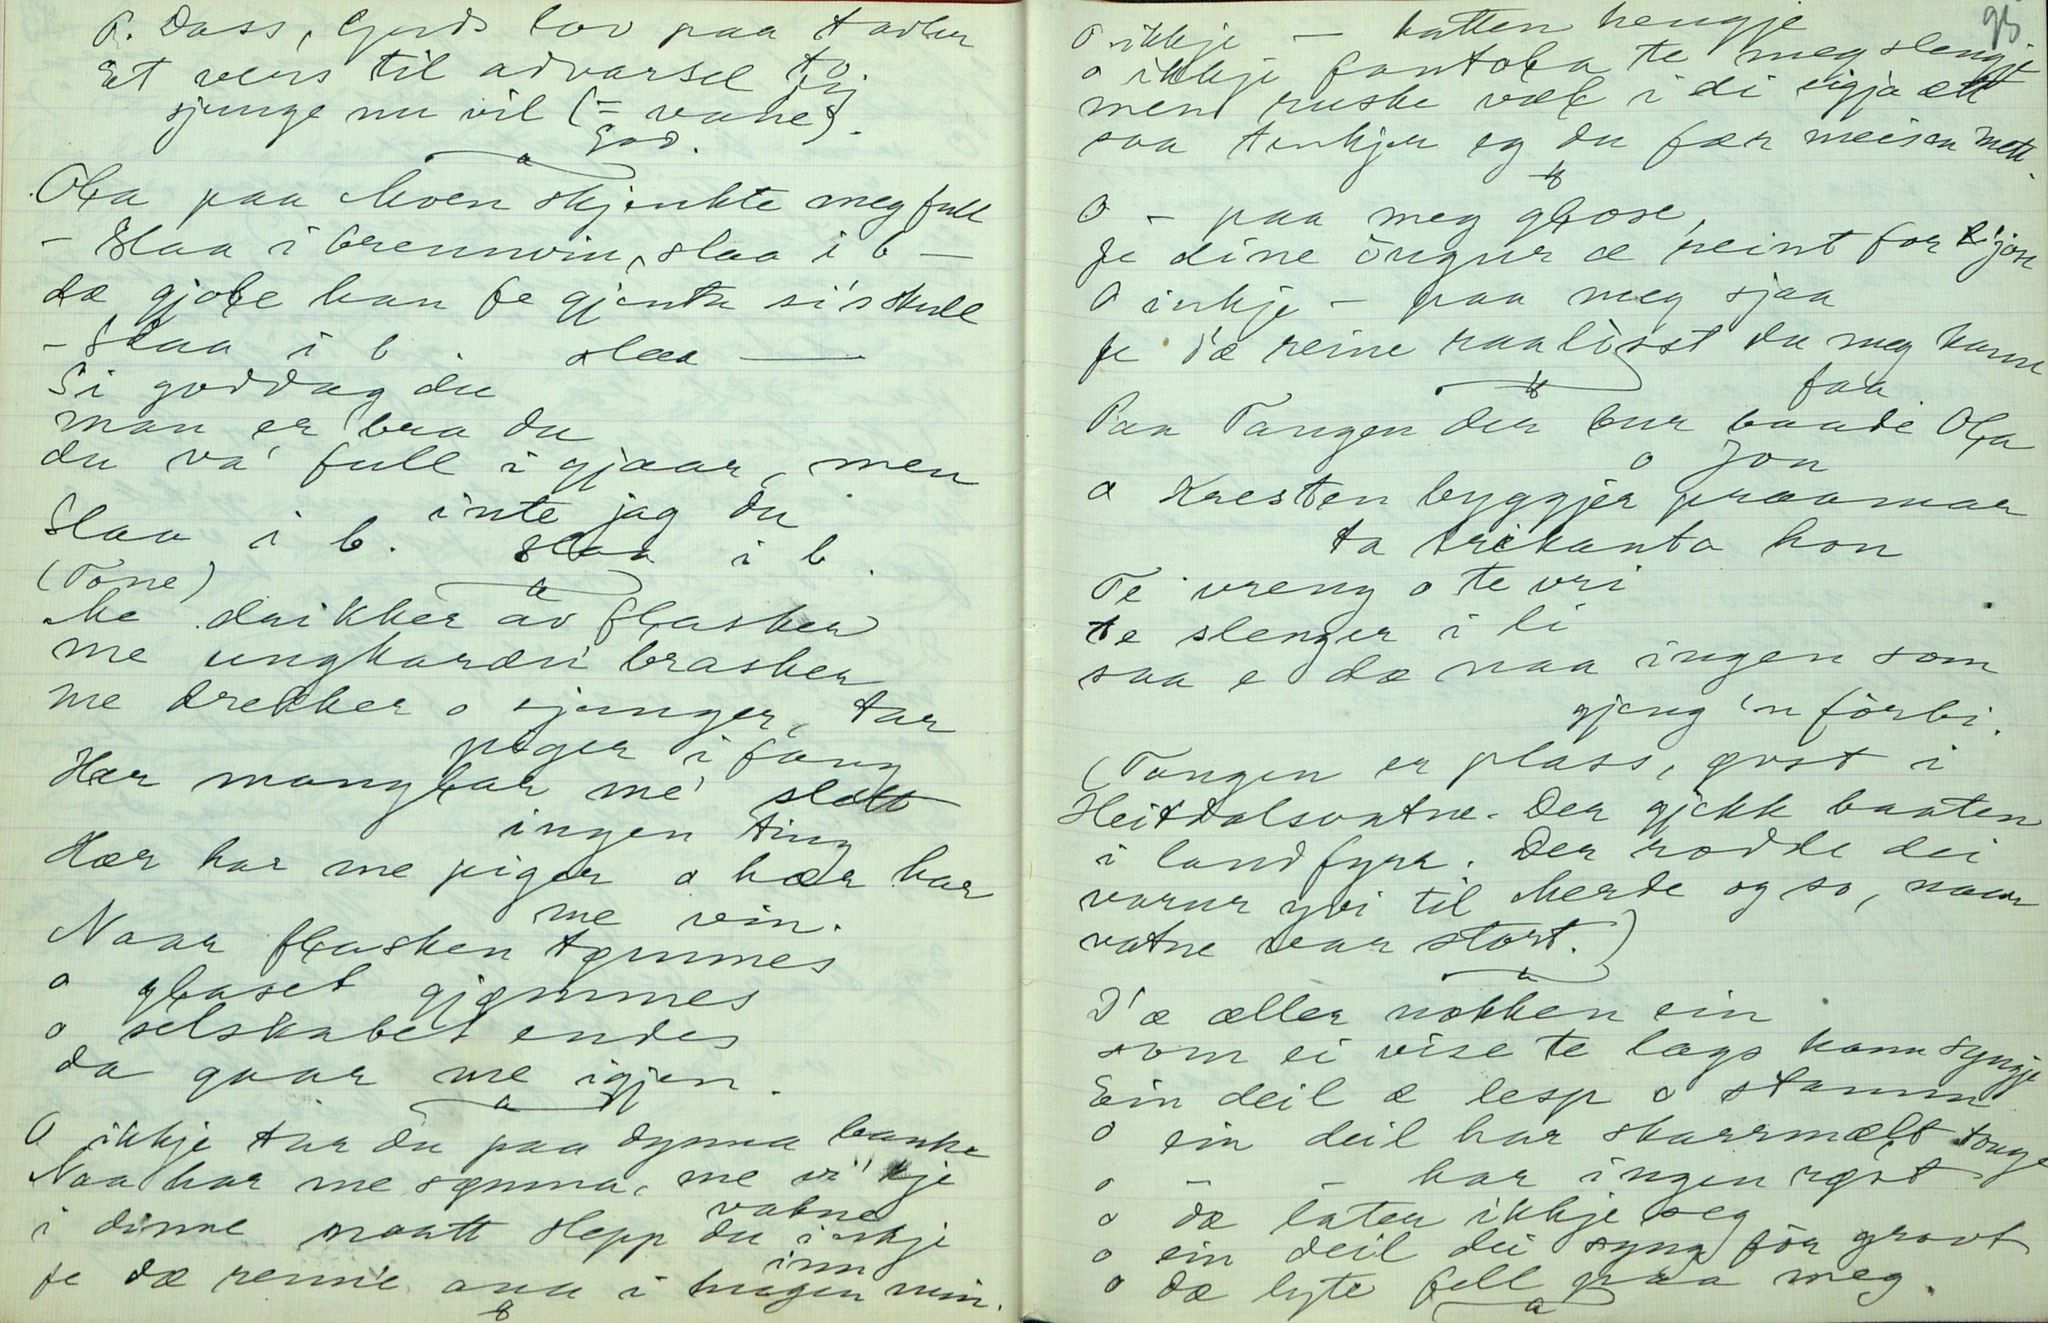 P. Dass, Guds lov paa tavler
Et vers til advarsel to
sjunge nu vil (= vane).
God.
Ola paa Moen skjenkte meg full
- Slaa i brennvin, slaa i b -
dæ gjole han fe gjenta si's skull
- Slaa i b. slaa —
Si goddag du
man er bra du
du va' full i gjaar, men
inte jag du
Slaa i b. slaa i b.
(Tone)
Me drikker av flasker
me ungkaræn' brasker
me drekker o sjunger, tar
piger i fang
Hær manglar me' slætt
ingen ting
Hær har me piger o hær har
me vin.
Naar flasken tømmes
o glaset gjømmes
o selskabet endes
da gaar me igjen.
O ikkje tar du paa dynna banke
Naa har me sømna, me vi' kje
vakne
i dinne naatt slepp du inkje
inn
fe dæ renn'e aaa i hugen min.
95
O ikkje - hatten hengje
o ikkje fantola te meg slengje
men ruske væl i di eigja ætt
saa tenkjer eg du fær meisen mett.
O - paa meg glose,
fe dine öugur æ reint for ljose
O inkje - paa meg sjaa
fe d'æ reine raalisst du meg kunn
faa
Paa Tangen der bur baade Ola
o Jon
o Kresten byggjer praamar
ta trekanta kon
Te vreng o te vri
te slenger i li
saa e dæ naa ingen som
gjeng 'n förbi.
(Tangen er plass, øvst i
Heitdalsvatne. Der gjekk baaten
i land fyrr. Der rodde dei
varur yvi til Merde og so, naar
vatne var stort.)
D'æ æller nokken ein
som ei vise te lags kann syngje
Ein deil æ lesp o stamm
o ein deil har skarrmælt tonge
o - - har ingen røst
o dæ later ikkje seg
o ein deil dei syng för grovt
o dæ lyte fell paa meg.